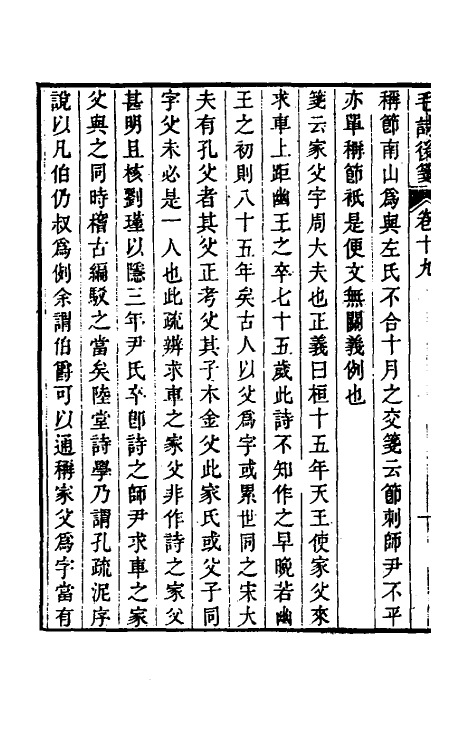 毛詩後箋 卷十九
稱節南山爲與左氏不合十月之交箋云節刺師尹不平
亦單稱節祇是便文無關義例也
箋云家父字周大夫也正義曰桓十五年天王使家父來
求車上距幽王之卒七十五歲此詩不知作之早晚若幽
王之初則八十五年矣古人以父爲字或累世同之宋大
夫有孔父者其父正考父其子木金父此家氏或父子同
字父未必是一人也此疏辨求車之家父非作詩之家父
甚明且核劉瑾以隱三年尹氏卒卽詩之師尹求車之家
父與之同時稽古編駁之當矣陸堂詩學乃謂孔疏泥序
說以凡伯仍叔爲例余謂伯爵可以通稱家父爲字當有